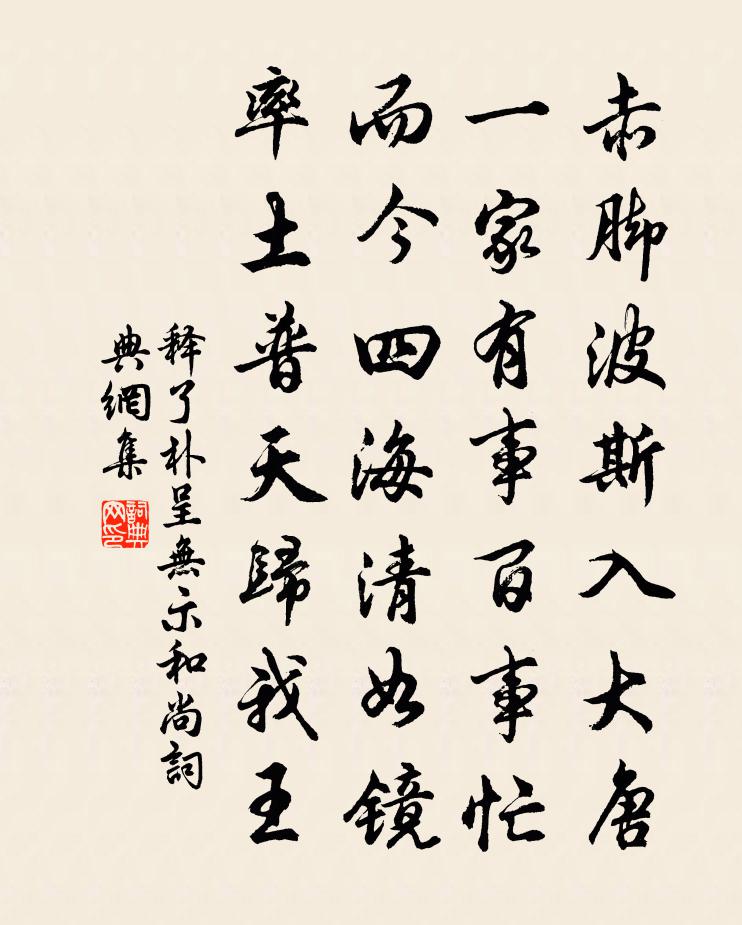 赤脚波斯入大唐
一家有事百事忙
而今四海清如镜
率土普天歸我王
释了朴呈無示和尚詞
典網集
詞典网印